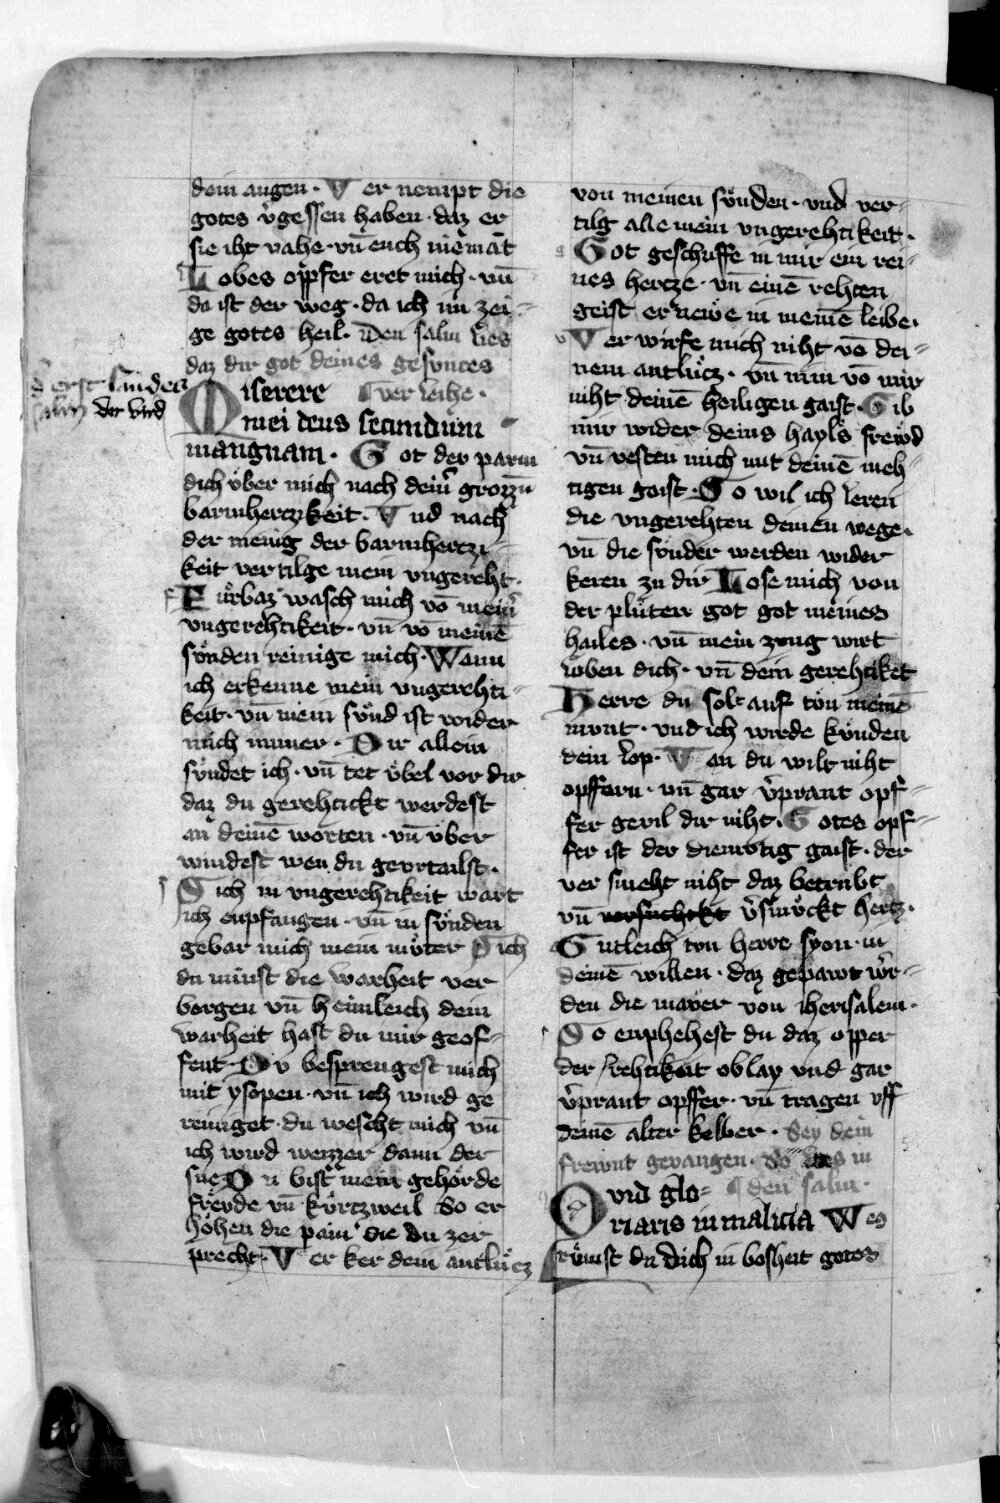 dein augen · Ver nempt die
gotes v̉gessen haben · daz er
sie iht vahe · vn̄ euch niemāt
Lobes opfer eret mich · vn̄
da ist der weg · da ich im zei-
ge gotes heil · Den salm lies
daz dir got deines gesuntes
Miserere ¶ ver leihe ·
mei deus secundum
mangnam · Got der parm
dich vͤber mich nach deinͬ grozzn̄
barmherczikeit · Vnd nach
der menig der barmherczi-
keit vertilge mein vngereht ·
Fuͤrbaz wasch mich vō meinͬ
vngerehtikeit · vn̄ vō meinē
suͤnden reinige mich · Wann
ich erkenne mein vngerehti-
keit · vn̄ mein suͤnd ist wider
mich immer · Dir allein
suͤndet ich · vn̄ tet vͤbel vor dir
daz du gerehtickt werdest
an deinē worten · vn̄ vber
windest wen du geurtailst ·
Sich in vngerehtikeit wart
ich enpfangen · vn̄ in suͤnden
gebar mich mein muͦter Sich
du minst die warheit ver
borgen vn̄ heimleich dein
warheit hast du mir geof-
fent · Dv besprengest mich
mit ysopen · vn̄ ich wird ge
reiniget · du wescht mich vn̄
ich wird weizzer dann der
sne Du bist mein gehoͤrde
freude vn̄ kuͤrtzweil So er
hoͤhen die pain die du zer
precht · Ver ker dein antluͤcz
d erst sunder
salm der vird
von meinen suͤnden · vnd ver-
tilg alle mein vngerehtikeit ·
Got geschuffe in mir ein rei-
nes hercze · vn̄ einē rehten
geist ernewe in meinē leibe ·
Ver wirfe mich niht vō dei-
nem antluͤcz · vn̄ nim vō mir
niht deinē heiligen gaist · Gib
mir wider deins hayls frewd
vn̄ vesten mich mit deinē meh-
tigen gaist · So wil ich leren
die vngerehten deinen wege ·
vn̄ die suͤnder werden wider
keren zu dir Lose mich von
der pluͤten got got meines
hailes · vn̄ mein zung wirt
loben dich · vn̄ dein gerehtiket
Herre du solt auf tuͦn meinē
munt · vnd ich wirde kuͤnden
dein lop · Van du wilt niht
opffarn · vn̄ gar v̉prant opf-
fer gevil dir niht · Gotes opf-
fer ist der diemuͤtig gaist · der
ver smeht niht daz betrubt
vn̄ versuchtkt v̉smuͤckt hertz ·
Gutleich tun herre syon · in
deinē willen · daz gepawt wͤr-
den die maver von iherusalem ·
So enphehest du daz opper
der rehtikait oblay vnd gar
v̉prant opffer · vn̄ tragen vff
deinē alter kelber · Sey dein
frewnt gevangen · So lies in
Quid glo- ¶ den salm ·
riaris in malicia Wes
ruͤmst du dich in bosheit gotes